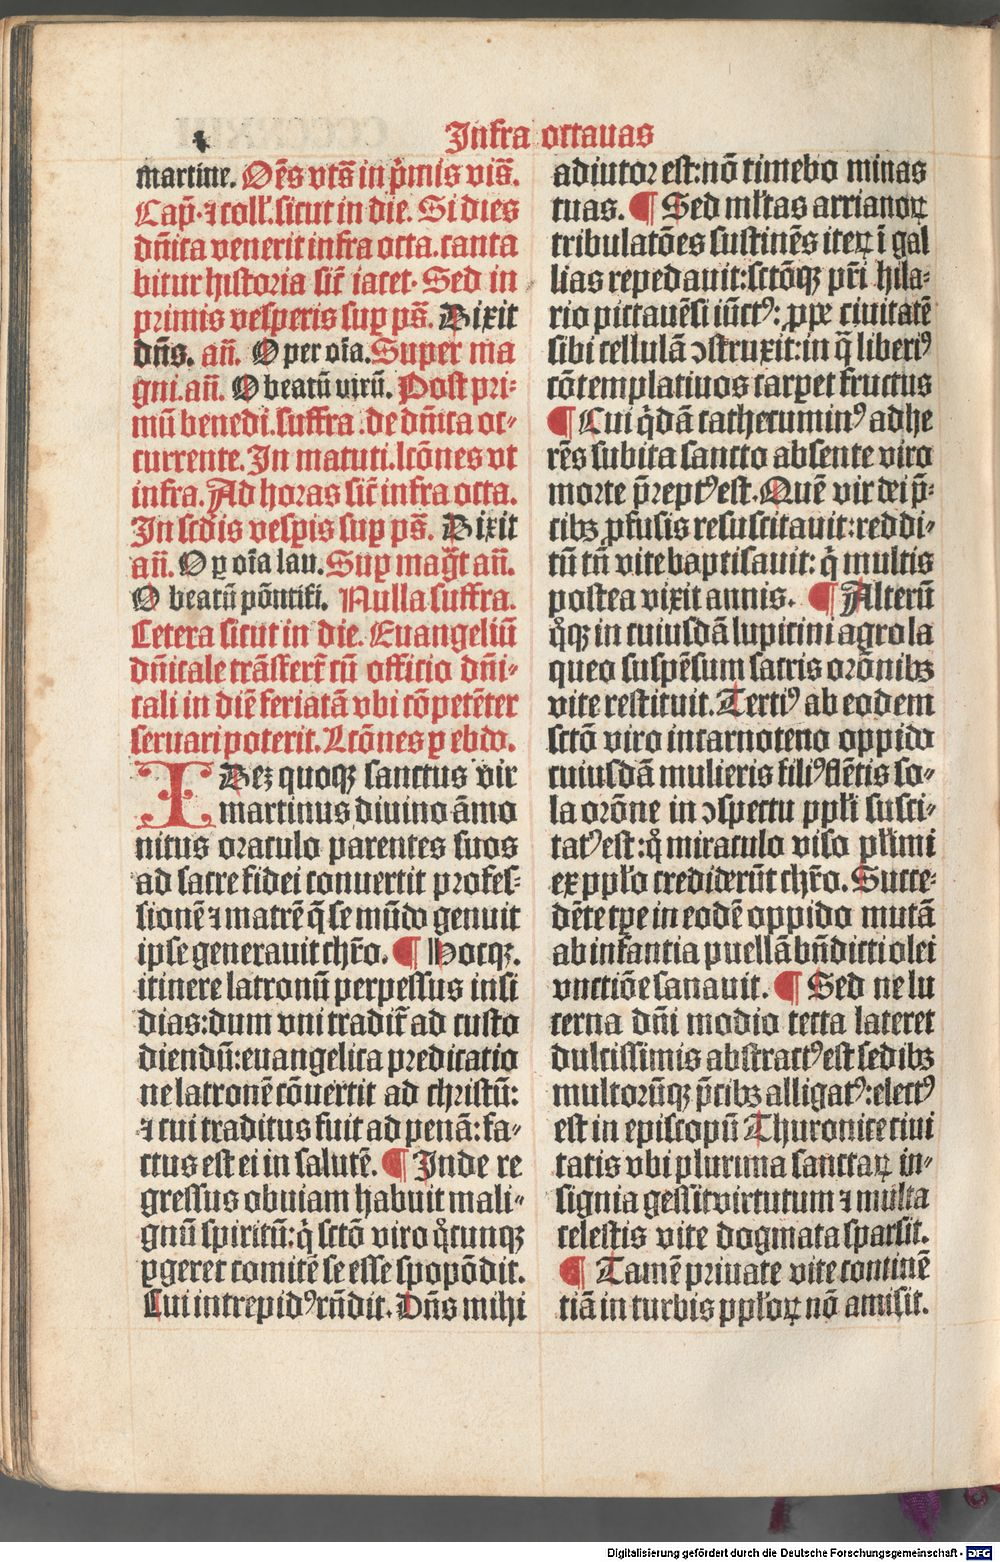 Infra octauas
martine. Oēs vtꝭ in p̄mis viꝭ.
Cap̄. ⁊ coll'. sicut in die. Si dies
dn̄ica venerit infra octa. canta
bitur historia sic̄ iacet. Sed in
primis vesperis suꝑ pꝭ. Dixit
dn̄s. an̄. O per oīa. Super ma
gni. an̄. O beatū virū. Post pri⸗
mū benedi. suffra. de dn̄ica oc⸗
currente. In matuti. lcōnes vt
infra. Ad horas sic̄ infra octa.
In scd̄is vesꝑis suꝑ pꝭ. Dixit
an̄. O ꝑ oīa lau. Suꝑ maḡt an̄.
O beatū pōntifi. Nulla suffra.
Cetera sicut in die. Euangeliū
dn̄icale trāsferr̄ cū officio dn̄i⸗
cali in diē feriatā vbi cōpetēter
seruari poterit. Lcōnes ꝑ ebdo.
IDez quoqꝫ sanctus vir
martinus diuino āmo
nitus oraculo parentes suos
ad sacre fidei conuertit profes⸗
sionē ⁊ matrē q̄ se mūdo genuit
ipse generauit chr̄o. ¶ Hocqꝫ.
itinere latronū perpessus insi
dias: dum vni tradit̄ ad custo
diendū: euangelica predicatio
ne latronē cōuertit ad christū:
⁊ cui traditus fuit ad penā: fa⸗
ctus est ei in salutē. ¶ Inde re
gressus obuiam habuit mali⸗
gnū spiritū: q̇ sctō viro q̊cunqꝫ
ꝑgeret comitē se esse spopōdit.
Cui intrepidꝰ rn̄dit. Dn̄s mihi
adiutor est: nō timebo minas
tuas. ¶ Sed ml̄tas arrianoꝝ
tribulatōes sustinēs iteꝝ ī gal
lias repedauit: sctōqꝫ pr̄i hila⸗
rio pictauēsi iūctꝰ: ꝓpe ciuitatē
sibi cellulā ꝯstruxit: in q̄ liberiꝰ
cōtemplatiuos carꝑet fructus
¶ Cui q̇dā cathecuminꝰ adhe
rēs subita sancto absente viro
morte p̄reptꝰ est. Quē vir dei p̄⸗
cibꝫ ꝓfusis resuscitauit: reddi⸗
tū tn̄ vite baptisauit: q̇ multis
postea vixit annis. ¶ Alterū
q̊qꝫ in cuiusdā lupicini agro la
queo suspēsum sacris orōnibꝫ
vite restituit. Tertiꝰ ab eodem
sctō viro in carnoteno oppido
cuiusdā mulieris filiꝰ flētis so⸗
la orōne in ꝯspectu ppl'i susci⸗
tatꝰ est: q̊ miraculo viso pl'imi
ex ppl'o crediderūt chr̄o. Succe⸗
dēte tꝑe in eodē oppido mutā
ab infantia puellā bn̄dicti olei
vnctiōe sanauit. ¶ Sed ne lu
cerna dn̄i modio tecta lateret
dulcissimis abstractꝰ est sedibꝫ
multorūqꝫ p̄cibꝫ alligatꝰ: electꝰ
est in episcopū Thuronice ciui
tatis vbi plurima sanctaꝝ in⸗
signia gessit virtutum ⁊ multa
celestis vite dogmata sparsit.
¶ Tamē priuate vite continē
tiā in turbis ppl'oꝝ nō amisit.
Digitalisierung gefördert durch die Deutsche Forschungsgemeinschaft - DFG